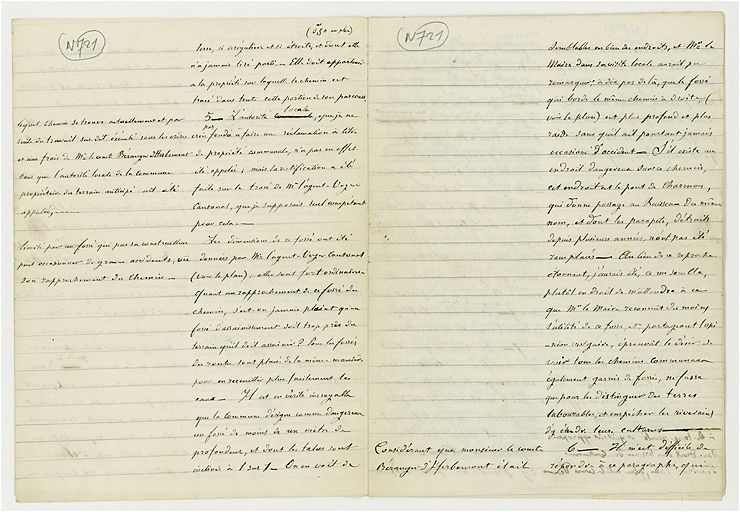 N° 721
(350 en plus)
terre, si irrégulier et si étroit, et dont elle
n'a jamais tiré parti — Elle doit appartenir
à la propriété sur laquelle le chemin est
tracé dans toute cette portion de son parcours.
lequel chemin se trouve actuellement et par
suite du travail sus dit exécuté sous les ordres
et aux frais de Mr le comte Béranger d'Herbemont
sans que l'autorité locale de la commune
propriétaire du terrain anticipé ait été
appelée, —
5 — L'autorité locale, que je ne
crois pas fondée à faire une réclamation à titre
de propriété communale, n'a pas en effet
été appelée; mais la rectification a été
faite sur le tracé de Mr l'agent-Voyer
Cantonal, que je supposais seul compétent
pour cela —
limité par un fossé qui par sa construction
peut occasionner de graves accidents, vu
son rapprochement du chemin —
Les dimensions de ce fossé ont été
données par Mr l'agent-Voyer Cantonal
(voir le plan), elles sont fort ordinaires
Quant au rapprochement de ce fossé du
chemin, s'est-on jamais plaint qu'un
fossé d'assainissement soit trop près du
terrain qu'il doit assainir? Tous les fossés
de route sont placés de la même manière
pour en recueillir plus facilement les
eaux — Il est en vérité incroyable
que la commune désigne comme dangereux
un fossé de moins de un mètre de
profondeur, et dont les talus sont
inclinés à 1 sur 1 — On en voit de
N° 721
semblables en bien des endroits, et Mr le
Maire dans sa visite locale aurait pu
remarquer à dix pas de là, que le fossé
qui borde le même chemin à droite (
voir le plan) est plus profond et plus
raide sans qu'il ait pourtant jamais
occasionné d'accident — S'il existe un
endroit dangereux sur ce chemin,
cet endroit est le pont de Charmois,
qui donne passage au Ruisseau du même
nom, et dont les parapets, détruits
depuis plusieurs années, n'ont pas été
remplacés — Au lieu de ce reproche
étonnant, j'aurais été, ce me semble,
plutôt en droit de m'attendre à ce
que Mr le Maire reconnût du moins
l'utilité de ce fossé, et partageant l'opi
nion vulgaire, éprouvât le désir de
voir tous les chemins communaux
également garnis de fossés, ne fusse
que pour les distinguer des terres
labourables, et empêcher les riverains
d'y étendre leurs cultures —
Considérant que monsieur le comte
Béranger d'Herbemont était
6 — Il m'est difficile de
répondre à ce paragraphe, qui